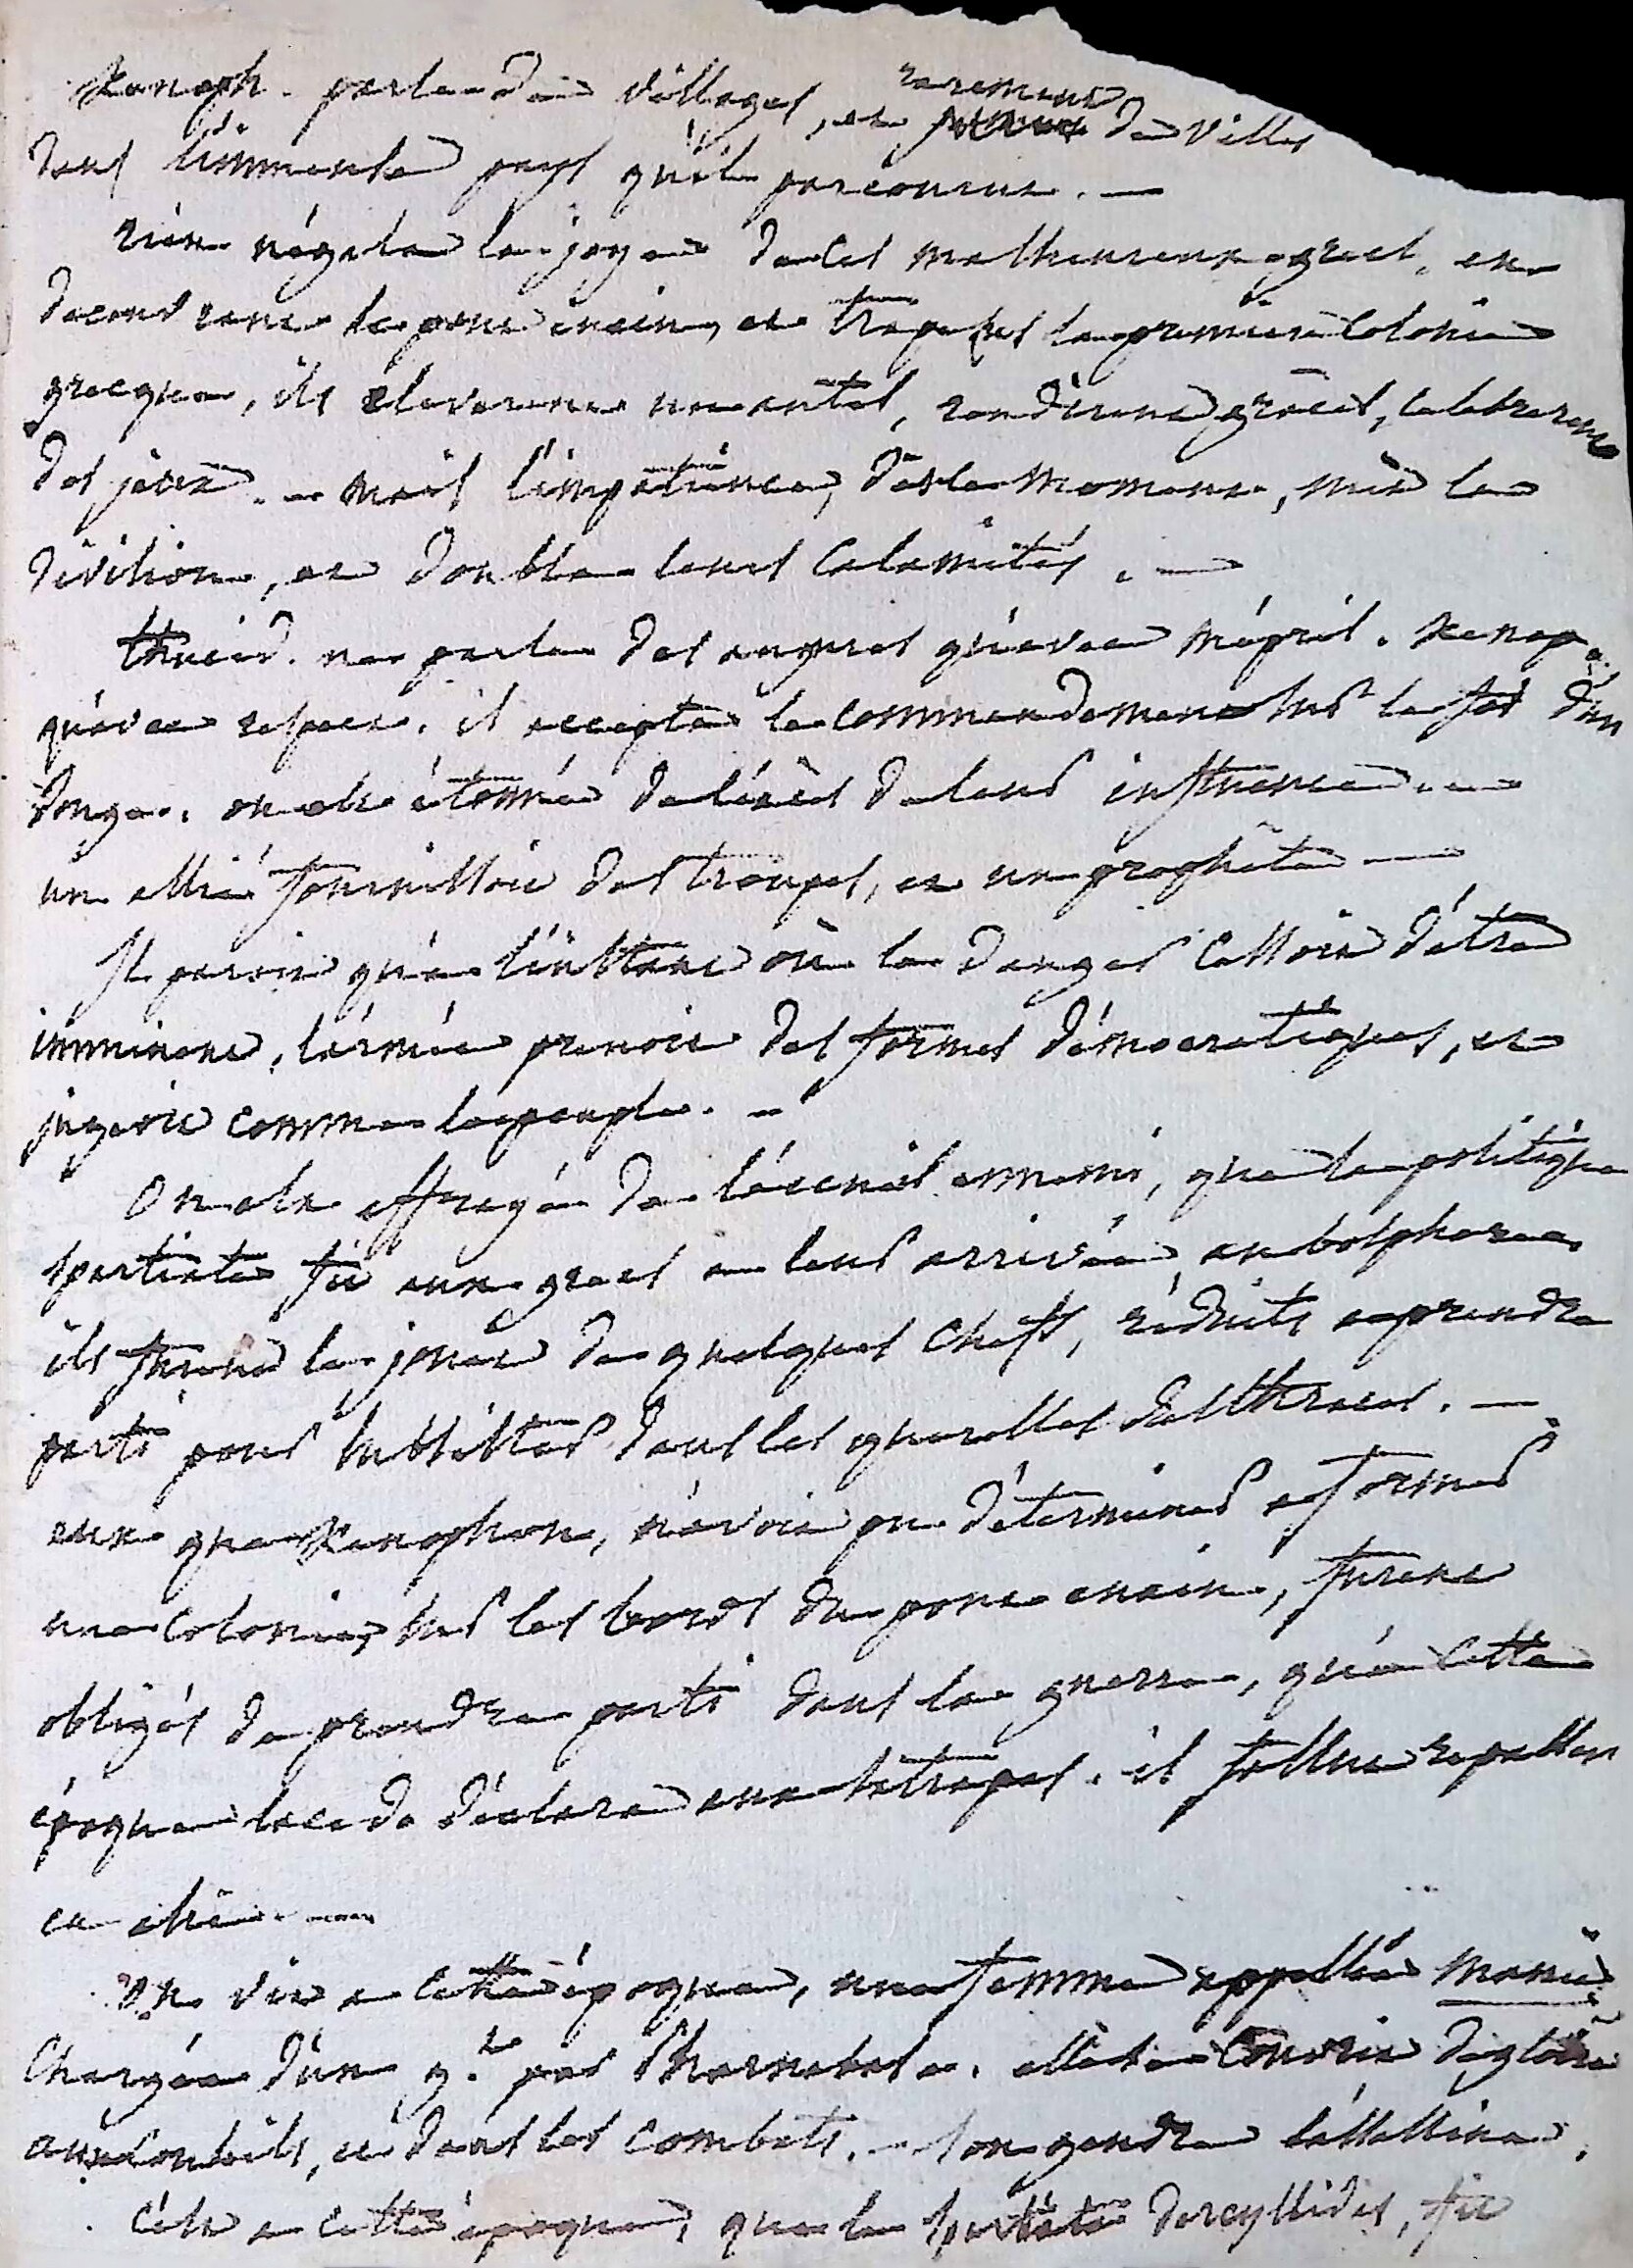 Xenoph. parle de villages, et rarement de villes
dans l'immense pays qu'il parcourut. —
rien n'égala la joye de ces malheureux grecs, en
decouvrant le pont euxin, et trapesus la premiere colonie
grecque, ils eleverent un autel, rendirent graces, celebrerent
des jeux. — mais l'impatience, dès le moment, mit la
division, et doubla leurs calamités. —
thucid. ne parle des augures qu'avec mépris. Xenop.
qu'avec respect. il accepta le commandement sur la foi d'un
songe. on est étonné de l'excès de leur influence. —
un allié fournissoit des troupes, et un prophête —
Il paroit qu'à l'instant où le danger cessoit d'être
imminent, l'armée prenoit des formes démocratiques, et
jugeoit comme le peuple. —
On est effrayé de l'accueil ennemi, que la politique
spartiate fit aux grecs a leur arrivée au bosphore.
ils furent le jouet de quelques chefs, réduits a prendre
parti pour subsister dans les querelles des thraces. —
ceux que Xenophon, n'avoit pu déterminer a former
une colonie, sur les bords du pont euxin, furent
obligés de prendre parti dans la guerre, qu'à cette
époque lacede déclara aux satrapes. il fallut repasser
en asie. —
On vit a cette époque, une femme appellée manie
chargée d'un g.t par Pharnabase. elle se couvrit de gloire
aux conseils, et dans les combats. — son gendre l'assassina.
c'est a cette époque, que le spartiate dercyllides, fit